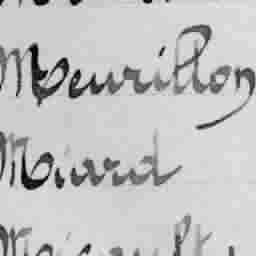 Meurillon
Miard